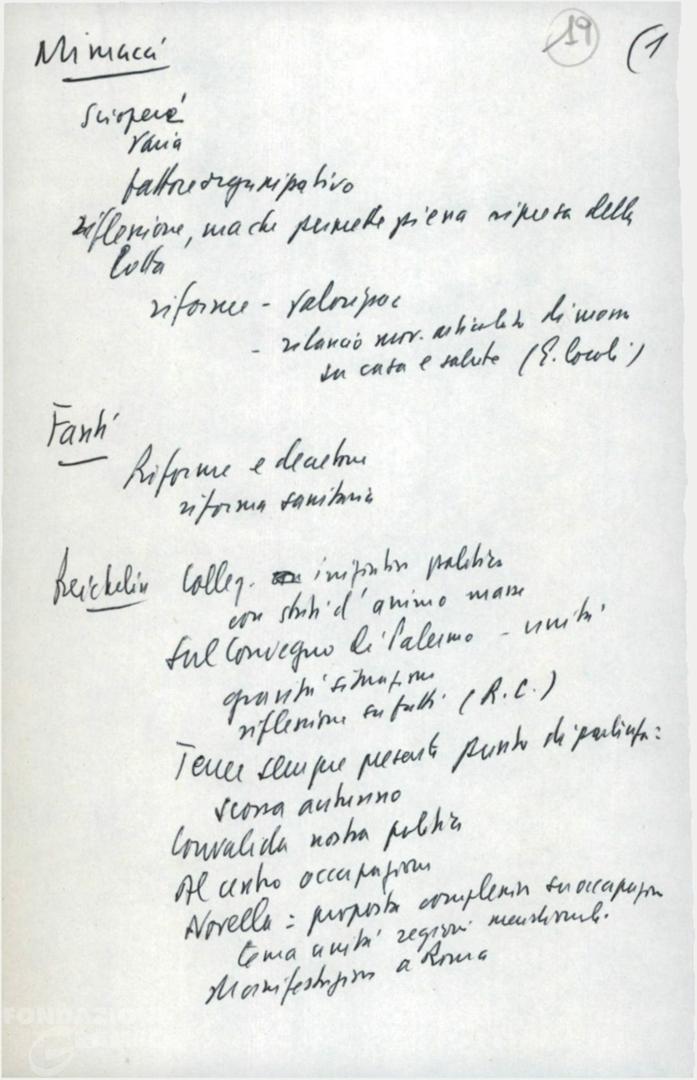 19 (1
Minucci
Scioperi
varia
fattore organizzativo
riflessione, ma che permette piena ripresa della
lotta
riforme - valorizzaz
- rilancio mov. articolato di massa
su casa e salute (E. locali)
Fanti
Riforme e decretone
riforma sanitaria
Reichlin Colleg. iniziativa politica
con stati d'animo masse
Sul Convegno di Palermo - unità
gravità situazione
riflessione su fatti (R.C.)
Tener sempre presente punto di partenza:
scorso autunno
Convalida nostra politica
Al centro occupazione
Novella: proposta complessiva su occupazione
tema unità regioni meridionali.
Manifestazione a Roma
FONDAZIONE